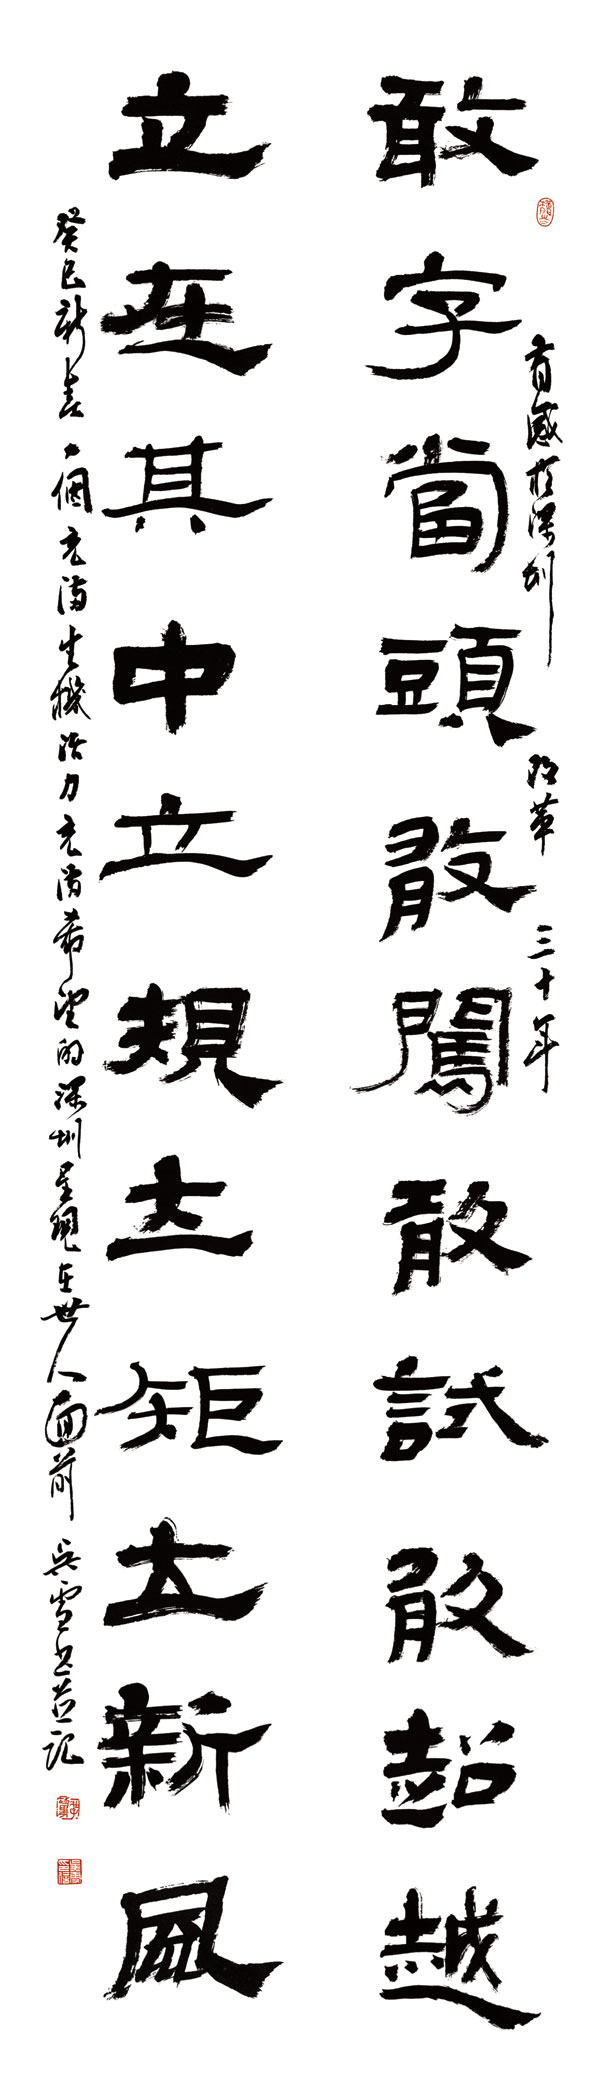 有感於深圳改革三十年
敢字當頭敢闖敢試敢超越
立在其中立規立矩立新風
癸巳新春一個充滿生機活力充滿希望的深圳呈現在世人面前 吳雪書並記